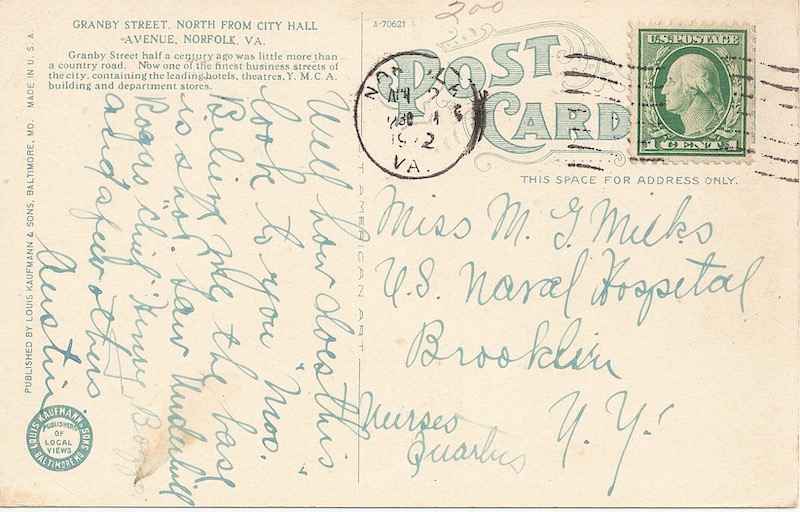 GRANBY STREET, NORTH FROM CITY HALL
AVENUE, NORFOLK, VA.
Granby Street half a century ago was little more than
a country road. Now one of the finest business streets of
the city, containing the leading hotels, theatres, Y. M. C. A.
building and department stores.
A-70621
200
POST
CARD
U.S. POSTAGE
1 CENT 1
VA.
THIS SPACE FOR ADDRESS ONLY.
Well how does this
look to you "Moo."
Believe me the base
is shot. Saw Underhill
Rogus "Chief"
and a few others
Austin
Miss M. G. Milks
U.S. Naval Hospital
Brooklin
N.Y.
Nurses
Quarters
PUBLISHED BY LOUIS KAUFMANN & SONS, BALTIMORE, MD. MADE IN U.S.A.
AMERICAN ART
LOUIS KAUFMANN & SONS
BALTIMORE MD.
PUBLISHERS
OF
LOCAL
VIEWS